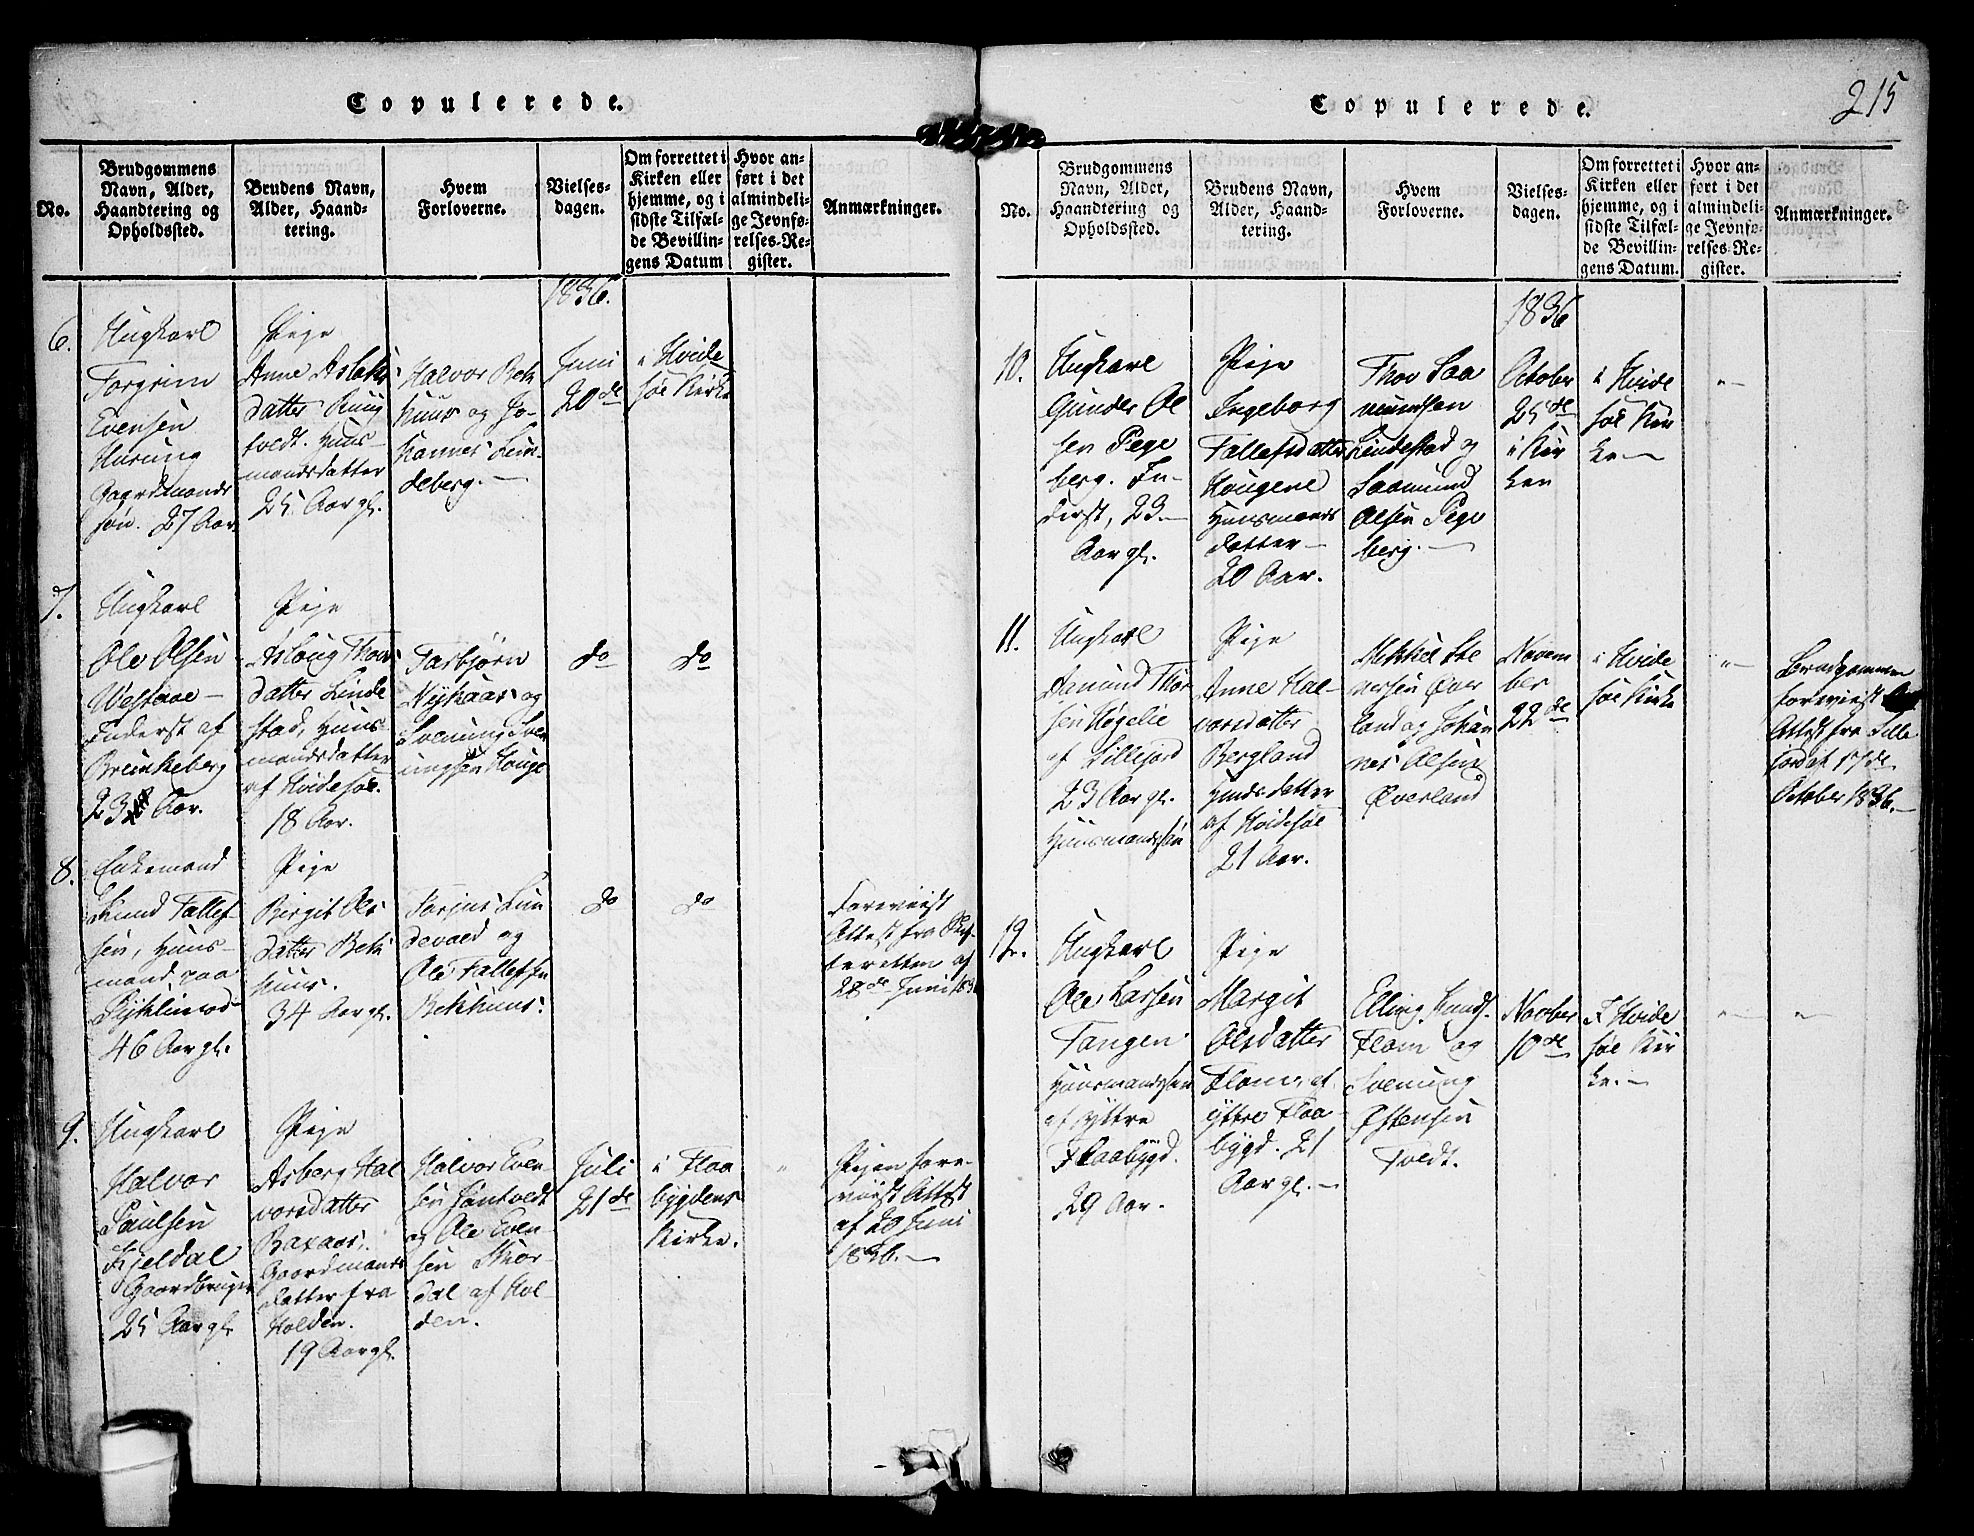 Copulerede.
No.
Brudgommens
Navn, Alder,
Haandtering og
Opholdssted.
Brudens Navn,
Alder, Haand-
tering.
Hvem
Forloverne.
Vielses-
dagen.
Om forrettet i
Kirken eller
hjemme, og i
sidste Tilfæl-
de Bevillin-
gens Datum
Hvor an-
ført i det
almindeli-
ge Jevnfø-
relses-Re-
gister.
Anmærkninger.
1836.
6.
Ungkarl
Torgrim
Evensen
Gaardmands
søn. 27 Aar.
Pige
Anne Aslaks
datter
tvedt. Huus-
mandsdatter
25 Aar gl.
Halvor Bek
huus og Jo-
hannes Lun-
deberg.
Juni
20de
i Hvide
søe Kirke
7.
Ungkarl
Ole Olsen
Inderst af
Brunkeberg
23 Aar.
Pige
Aslaug Thors
datter Linde
stad, Huus-
mandsdatter
af Hvidesøe.
18 Aar.
Tarbjørn
Nykaas og
Svenung Sven
ungsen Houge
do
do
8.
Enkemand
Knud Tallef-
sen, Huus-
mand paa
46 Aar gl.
Pige
Birgit Ols
datter Bek
huus.
34 Aar gl.
Torjus Lun
devald og
Ole Tallefsen
Bekhuus.
do
do
Foreviist
Attest fra Skif-
teretten af
28de Juni 183
9.
Ungkarl
Halvor
Paulsen
Fjeldal
Gaardbruger
25 Aar gl.
Pige
Asberg Hal
vorsdatter
Gaardmands
datter fra
Holden.
19 Aar gl.
Halvor Even-
sen
og Ole Even-
sen
dal af Hol-
den.
Juli
21de
i Flaa
bygdens
Kirke.
"
Pigen fore-
viist Attest
af 20 Juni
1836.
Copulerede.
215
No.
Brudgommens
Navn, Alder,
Haandtering og
Opholdssted.
Brudens Navn,
Alder, Haand-
tering.
Hvem
Forloverne.
Vielses-
dagen.
Om forrettet i
Kirken eller
hjemme, og i
sidste Tilfæl-
de Bevillin-
gens Datum.
Hvor an-
ført i det
almindeli-
ge Jevnfø-
relses-Re-
gister.
Anmærkninger.
1836
10.
Ungkarl
Gunder Ol
sen Pege
berg. In-
derst, 23
Aar gl.
Pige
Ingeborg
Tallefsdatter
Hougene
Huusmands
datter
20 Aar.
Thov Saa
mundsen
Lindestad og
Saamund
Olsen Pege
berg.
October
25de
i Kir
ken
i Hvide
søe Kir
ke
"
11.
Ungkarl
Aanund Thor
sen Høgelie
af Sillejord
23 Aar gl.
Huusmandssøn
Pige
Anne Hal-
vorsdatter
Bergland
Huusdatter
af Hvidesøe
21 Aar.
Mikkel Ste
nersen Øver
land og Johan
nes Olsen
Øverland
Novem
ber
22de
i Hvide
søe Kirke
"
Brudgommen
foreviist
Attest fra Sille
jord af 17de
October 1836.
12.
Ungkarl
Ole Larsen
Tangen
Huusmandssøn
af yttre
Flaabygd.
29 Aar.
Pige
Margit
Olsdatter
Flom, af
yttre Flaa-
bygd. 21
Aar gl.
Elling Knuds.
Flom og
Svenung
Østensen
Tvedt.
Novber
10de
I Hvide
søe Kir
ke.
"
"